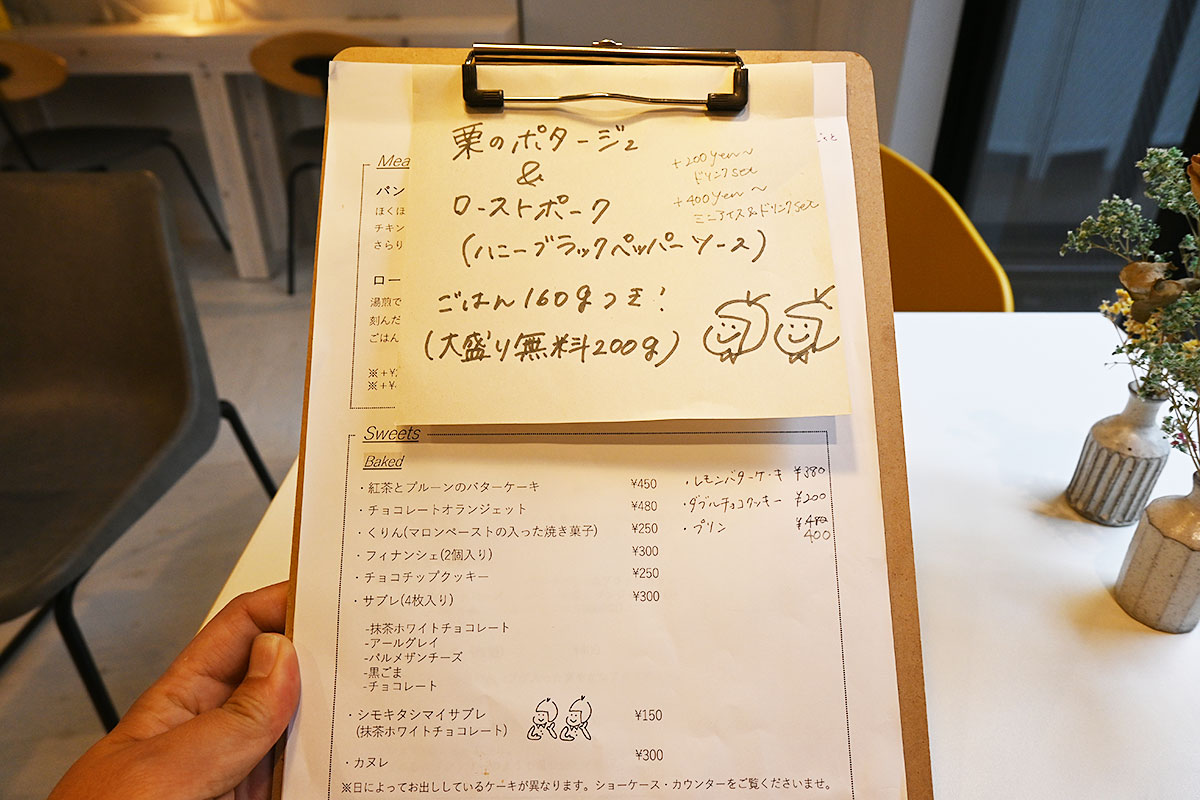 栗のポタージュ
&
ローストポーク
(ハニーブラックペッパーソース)
ごはん160gつき!
(大盛り無料200g)
+200yen~
ドリンクset
+400yen~
ミニアイス&ドリンクset
ごと
Mea
パン
ほくほ
チキン
さらり
ロー
湯煎で
刻んだ
ごはん
※+¥
※+¥
Sweets
Baked
・紅茶とプルーンのバターケーキ ¥450
・チョコレートオランジェット ¥480
・くりん(マロンペーストの入った焼き菓子) ¥250
・フィナンシェ(2個入り) ¥300
・チョコチップクッキー ¥250
・サブレ(4枚入り) ¥300
-抹茶ホワイトチョコレート
-アールグレイ
-パルメザンチーズ
-黒ごま
-チョコレート
・シモキタシマイサブレ ¥150
(抹茶ホワイトチョコレート)
・カヌレ ¥300
・レモンバターケーキ ¥380
・ダブルチョコクッキー ¥200
・プリン ¥480
400
※日によってお出ししているケーキが異なります。ショーケース・カウンターをご覧くださいませ。